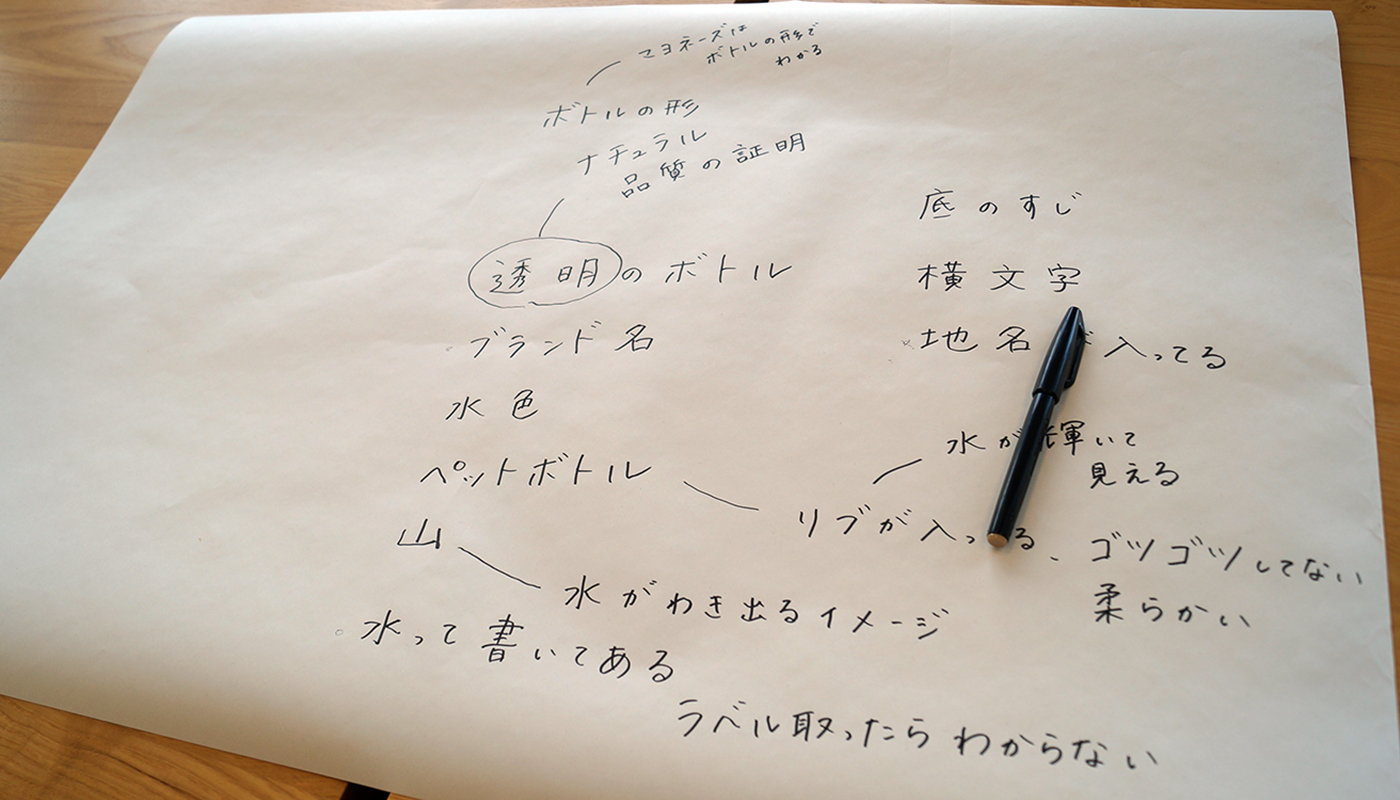 マヨネーズは
ボトルの形で
わかる
ボトルの形
ナチュラル
品質の証明
透明のボトル
ブランド名
水色
ペットボトル
山
水がわき出るイメージ
水って書いてある
ラベル取ったらわからない
底のすじ
横文字
地名 入ってる
水が輝いて
見える
リブが入っ る、ゴツゴツしてない
柔らかい